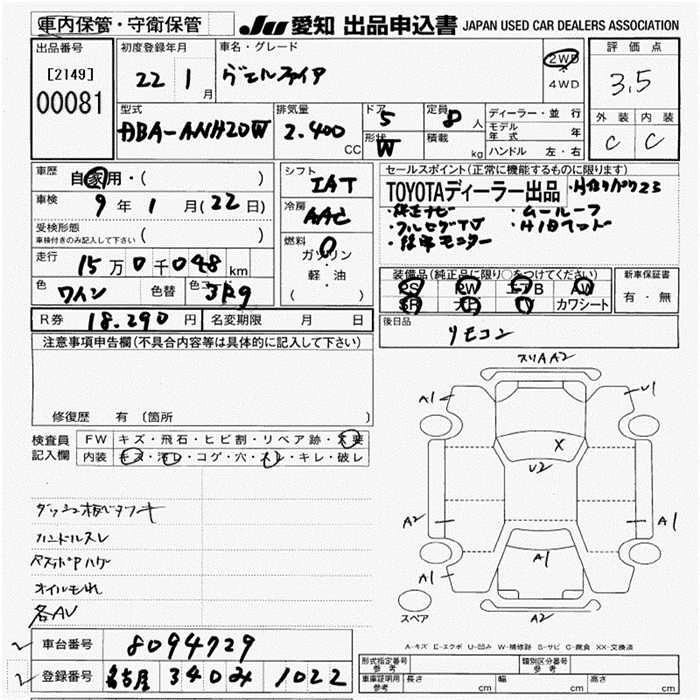 車内保管・守衛保管
JU 愛知 出品申込書 JAPAN USED CAR DEALERS ASSOCIATION
出品番号
[2149]
00081
初度登録年月
22 1 月
車名・グレード
ヴェルファイア
2WD
4WD
評価点
3.5
外装 内装
C C
型式
DBA-ANH20W
排気量
2.400 CC
ドア 5
形状 W
定員 8 人
積載 kg
ディーラー・並行
モデル年式 年
ハンドル 左・右
車歴
自家用・( )
車検 9年1月(22日)
受検形態
車検付きのみ記入して下さい ( )
走行 15万0千048km
色 ワイン 色替 色コード 3R9
シフト
IAT
冷房
AAC
燃料
ガソリン
軽油
( )
セールスポイント(正常に機能するものに限ります)
TOYOTAディーラー出品
・純正ナビ ・ムールーフ
・フルセグTV ・HID
・後席モニター
装備品(純正品に限り○をつけてください)
PS PW エアB AW
SR カワシート
新車保証書
有・無
R券 18.290円 名変期限 月 日
後日品
リモコン
注意事項申告欄(不具合内容等は具体的に記入して下さい)
修復歴 有 〔箇所
検査員
記入欄
FW キズ・飛石・ヒビ割・リペア跡・X要
内装 キズ・汚レ・コゲ・穴・スレ・キレ・破レ
ハンドルスレ
オイルもれ
各AU
スリAA2
A1 U1
X
U2
A2 A1
A1
A1
A2
スペア
A-キズ E-エクボ U-凹み W-補修跡 S-サビ C-腐食 XX-交換済
車台番号 8094729
登録番号 名古屋 340 み 1022
形式指定番号
参考
類別区分番号
参考
車庫証明用
参考
長さ cm 幅 cm 高さ cm